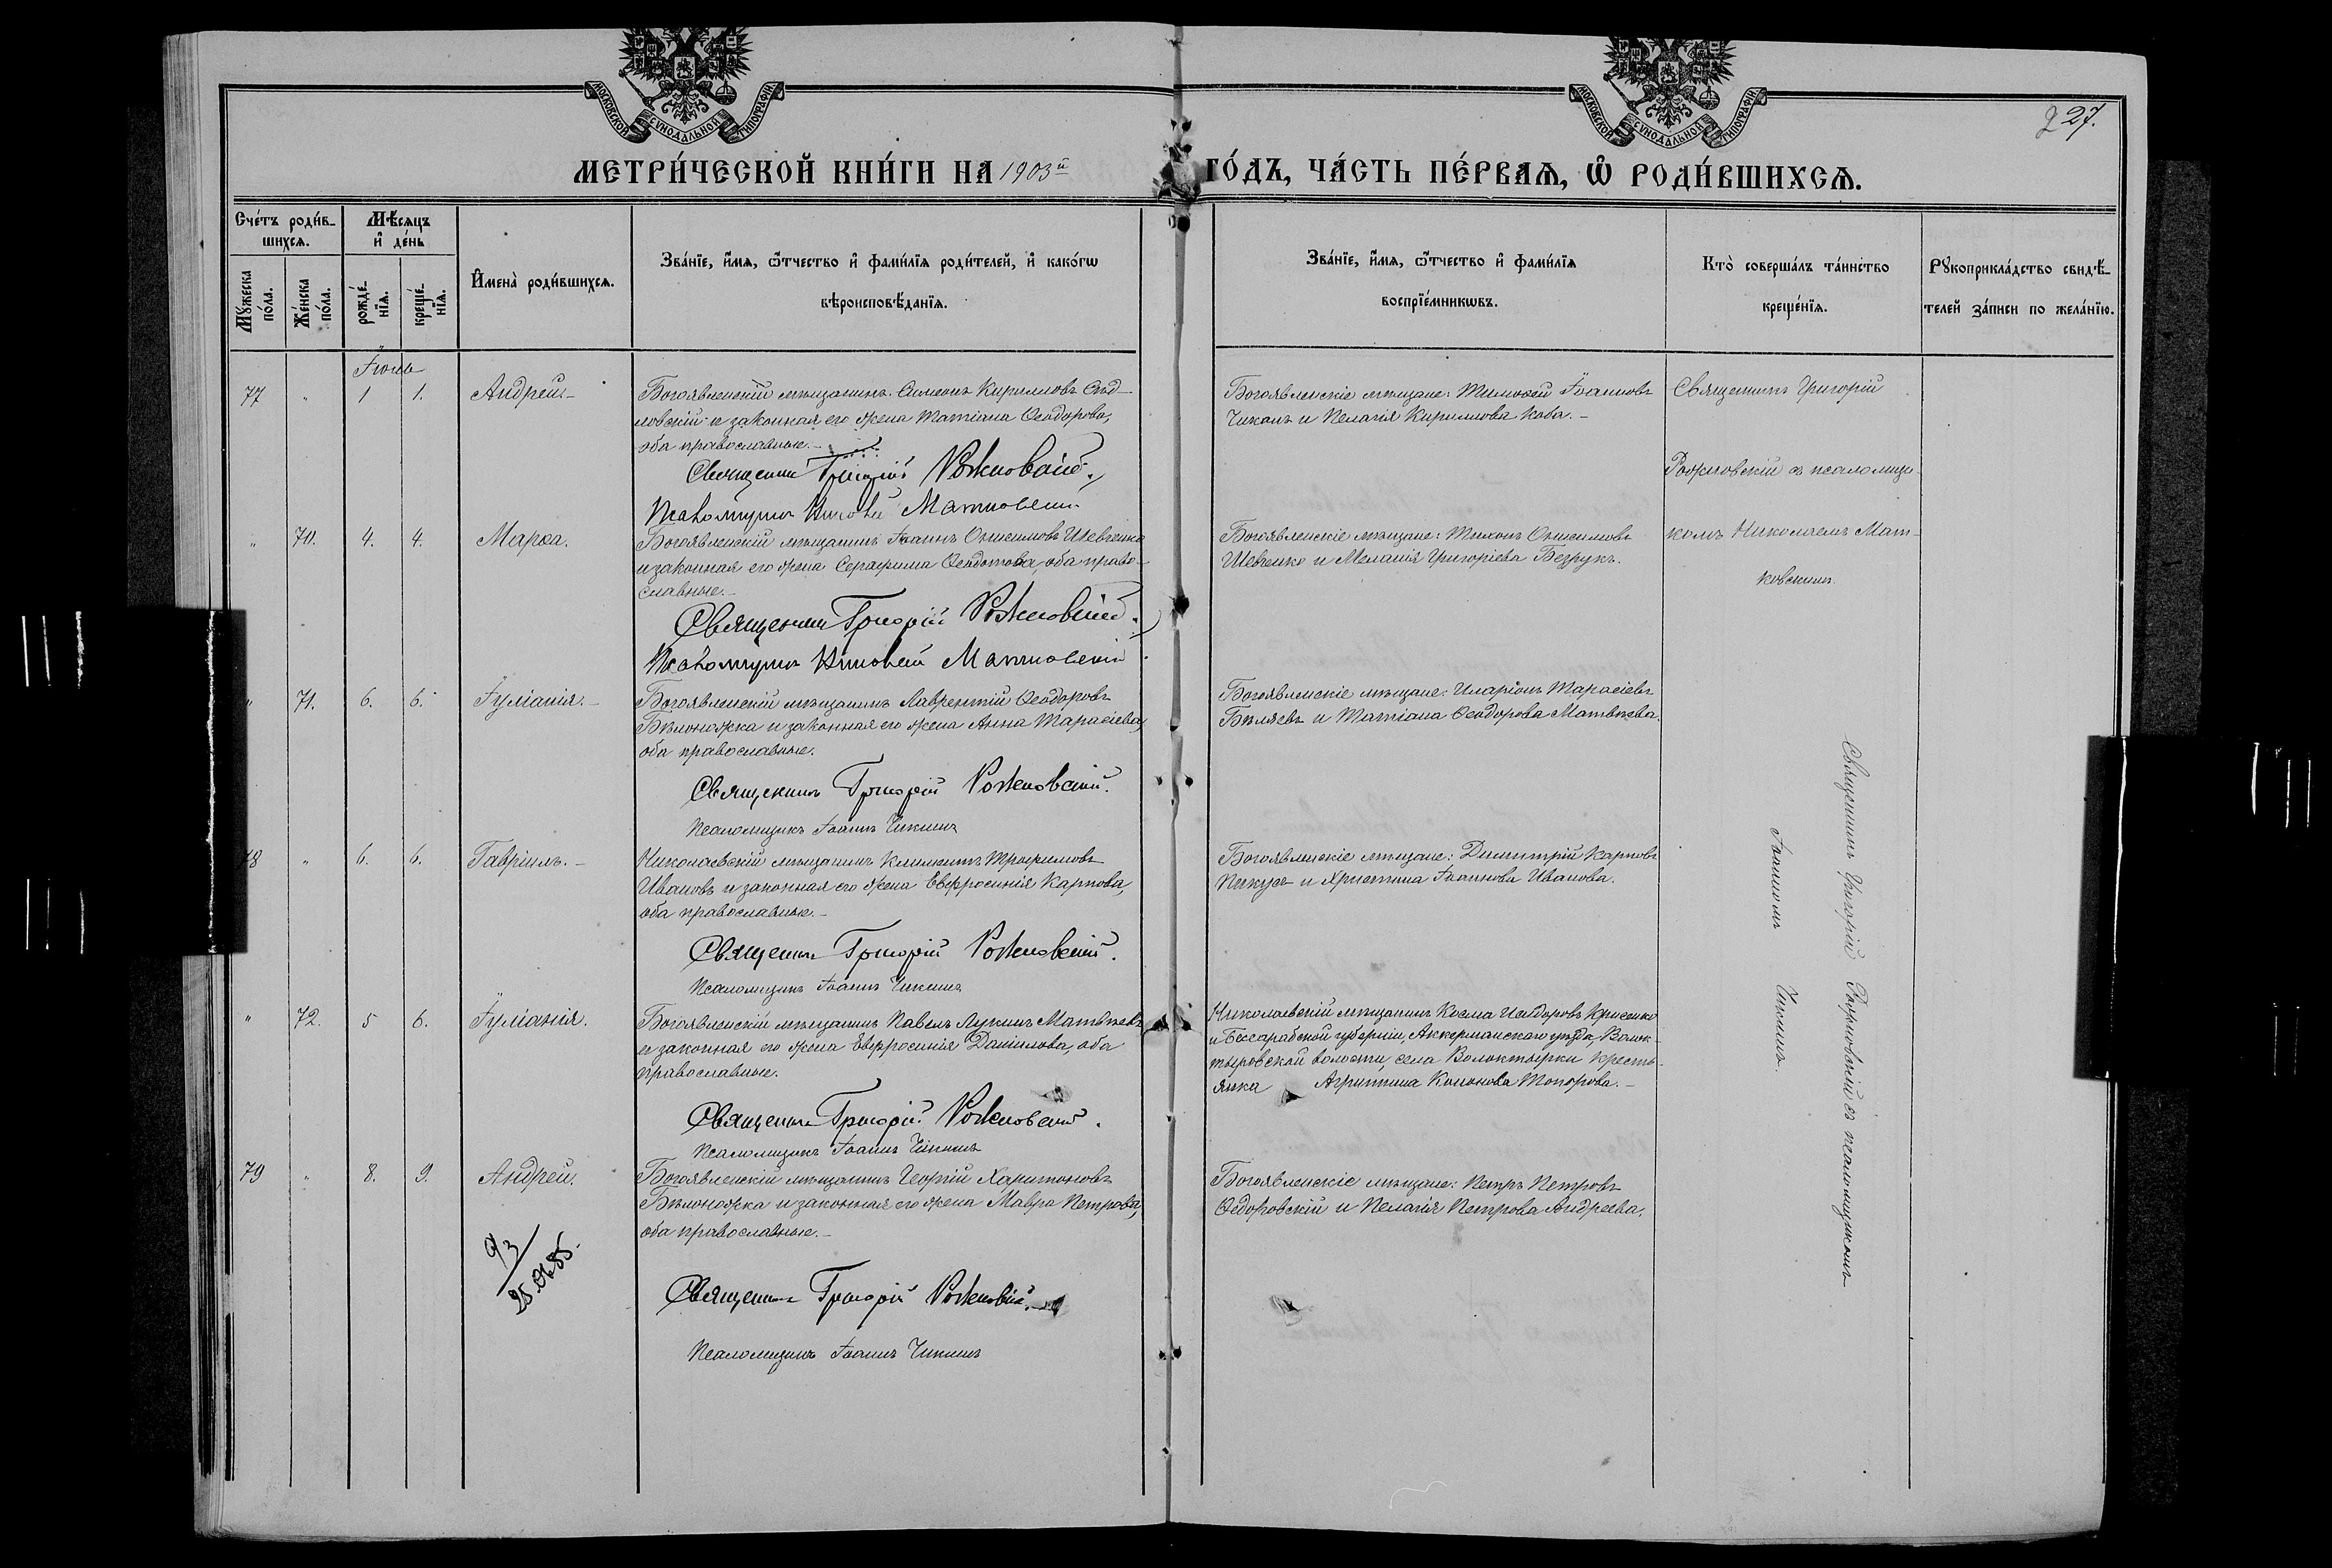 МОСКОВСКОЙ СѴНОДАЛЬНОЙ ТИПОГРАФІИ
МОСКОВСКОЙ СѴНОДАЛЬНОЙ ТИПОГРАФІИ
227.
МЕТРИ́ЧЕСКОЙ КНИ́ГИ НА 1903й ГО́ДЪ, ЧА́СТЬ ПЕ́РВАѦ, Ѡ҆ РОДИ́ВШИХСѦ.
Сче́тъ роди́в-
шихсѧ.
Мѣ́сѧцъ
и҆ де́нь
Мꙋ́жеска по́ла.
Же́нска по́ла.
рожде́-
нїѧ.
креще́-
нїѧ.
И҆мена̀ роди́вшихсѧ.
Зва́нїе, и҆́мѧ, ѻ҆́тчество и҆ фами́лїѧ роди́телей, и҆ како́гѡ
вѣроисповѣ́данїѧ.
Зва́нїе, и҆́мѧ, ѻ҆́тчество и҆ фами́лїѧ
воспрїе́мникѡвъ.
Кто̀ соверша́лъ та́инство
креще́нїѧ.
Рꙋкоприкла́дство свидѣ́-
телей за́писи по жела́нїю.
Іюнь
77 " 1 1. Андрей.-
Богоявленскій мѣщанинъ Симеонъ Кирилловъ Сѣд-
ловскій и законная его жена Татіана Ѳеодорова,
оба православные.-
Священникъ Григорій Рожновскій.
Псаломщикъ Николай Матковскій
Богоявленскіе мѣщане: Тимоѳей Іоанновъ
Чиканъ и Пелагія Кириллова Коба.-
Священникъ Григорій
Рожновскій съ псаломщи-
комъ Николаемъ Мат-
ковскимъ.
" 70. 4. 4. Марѳа.
Богоявленскій мѣщанинъ Іоаннъ Онисимовъ Шевченко
и законная его жена Серафима Ѳеодотова, оба право-
славные.-
Священникъ Григорій Рожновскій.
Псаломщикъ Николай Матковскій
Богоявленскіе мѣщане: Тихонъ Онисимовъ
Шевченко и Меланія Григоріева Безрукъ.
" 71. 6. 6. Іуліанія.-
Богоявленскій мѣщанинъ Лаврентій Ѳеодоровъ
Бѣлоножка и законная его жена Анна Тарасіева,
оба православные.
Священникъ Григорій Рожновскій.
Псаломщикъ Іоаннъ Чикинъ
Богоявленскіе мѣщане: Иларіонъ Тарасіевъ
Бѣляевъ и Татіана Ѳеодорова Матвѣева.
78 " 6. 6. Гавріилъ.-
Николаевскій мѣщанинъ Климентъ Трофимовъ
Ивановъ и законная его жена Евфросинія Карпова,
оба православные.-
Священникъ Григорій Рожновскій.
Псаломщикъ Іоаннъ Чикинъ
Богоявленскіе мѣщане: Димитрій Карповъ
и Христина Іоаннова Иванова.
" 72. 5 6. Іуліанія.
Богоявленскій мѣщанинъ Павелъ Лукинъ Матвѣевъ
и законная его жена Евфросинія Даніилова, оба
православные.
Священникъ Григорій Рожновскій.
Псаломщикъ Іоаннъ Чикинъ
Николаевскій мѣщанинъ Косма Исидоровъ
и Бессарабской губерніи, Аккерманскаго уѣзда, Волон-
тыровской волости, села Волонтыровки кресть-
янка Агриппина Кононова Топорова.-
79 " 8. 9. Андрей.
Богоявленскій мѣщанинъ Георгій Харитоновъ
Бѣлоножка и законная его жена Мавра Петрова,
оба православные.-
Священникъ Григорій Рожновскій.
Псаломщикъ Іоаннъ Чикинъ
Богоявленскіе мѣщане: Петръ Петровъ
Ѳедоровскій и Пелагія Петрова Андреева.
Священникъ Григорій Рожновскій съ псаломщикомъ
Іоанномъ Чикинъ.